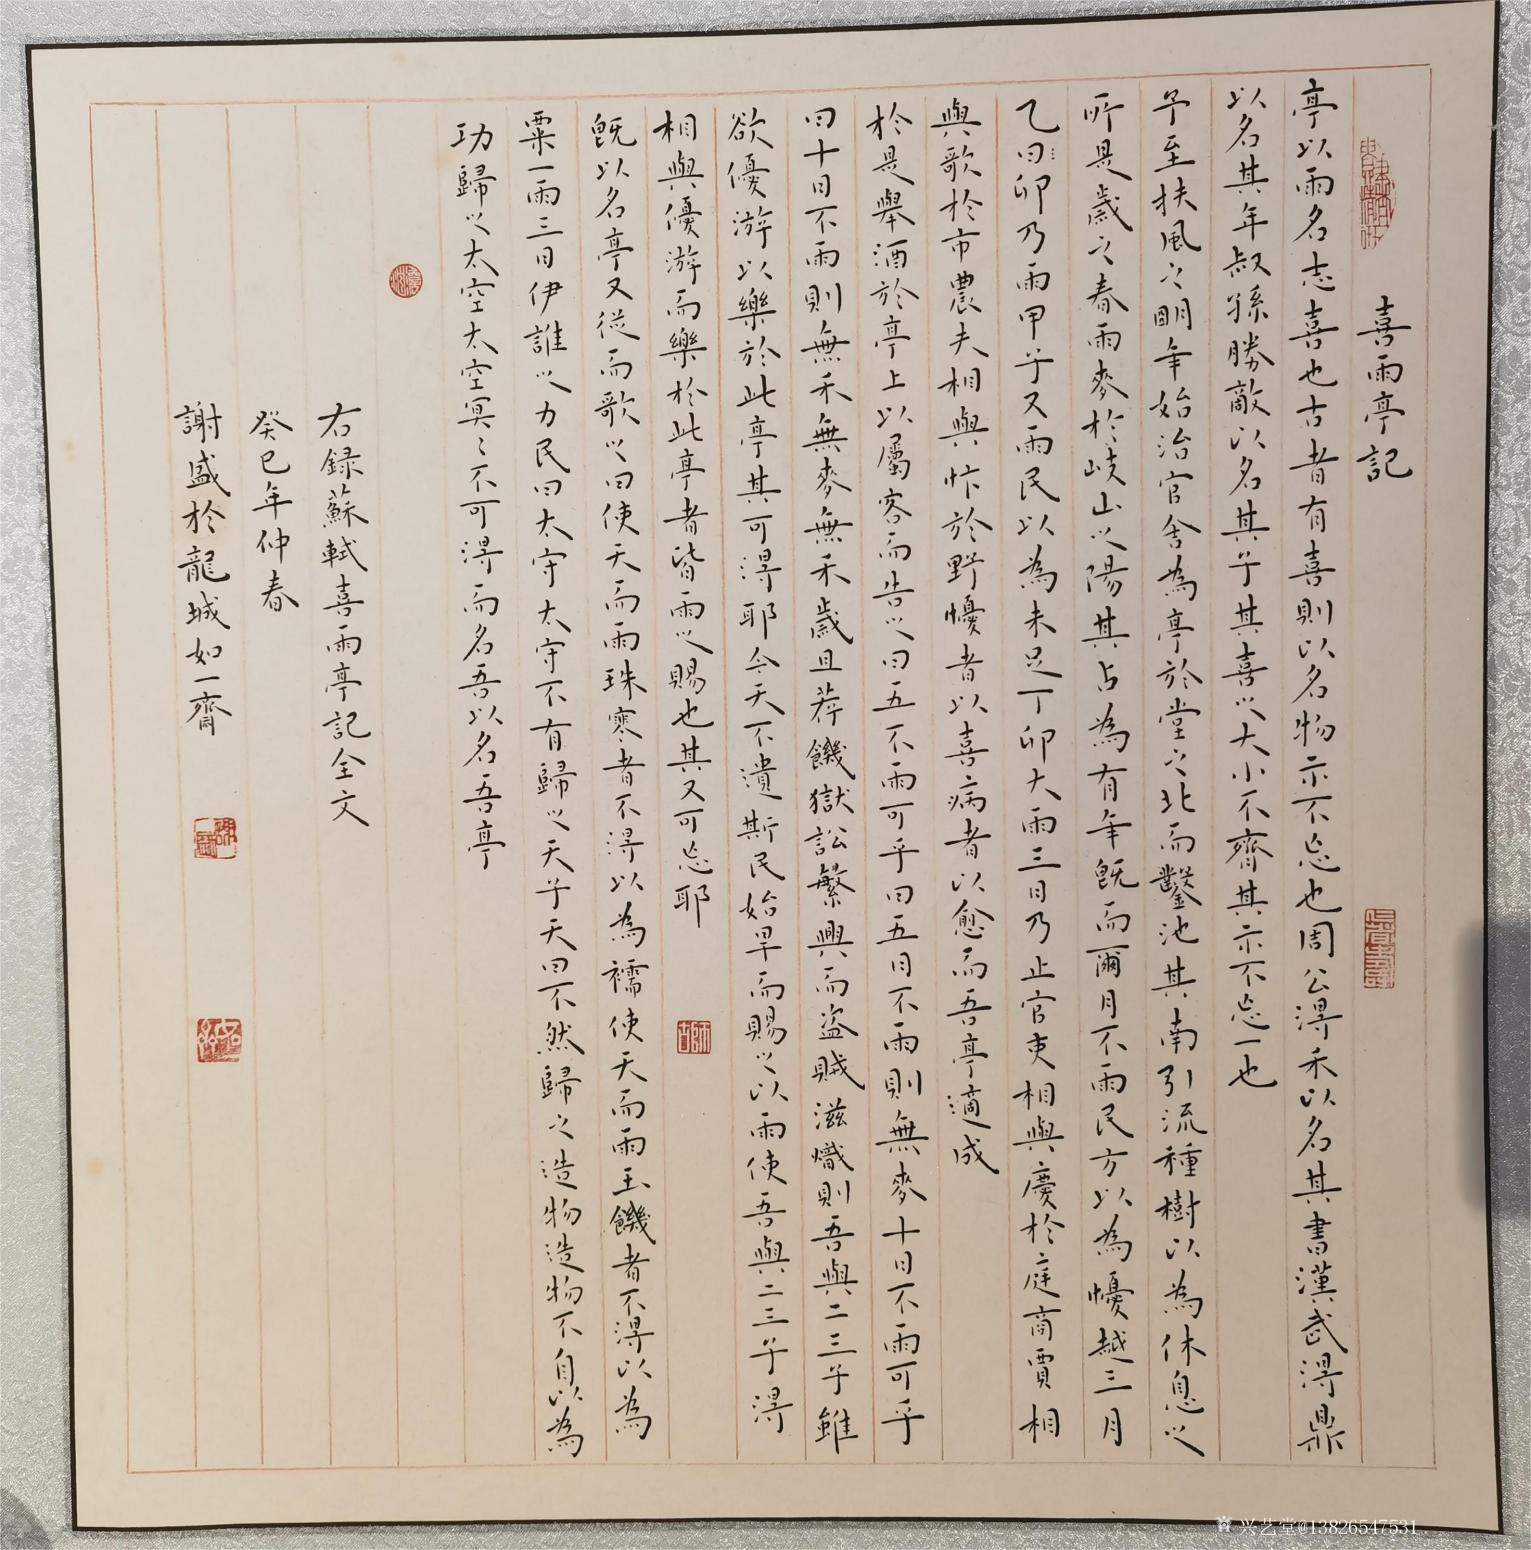 喜雨亭記
亭以雨名志喜也古者有喜則以名物示不忘也周公得禾以名其書漢武得鼎
以名其年叔孫勝敵以名其子其喜之大小不齊其示不忘一也
予至扶風之明年始治官舍為亭於堂之北而鑿池其南引流種樹以為休息之
所是歲之春雨麥於岐山之陽其占為有年既而彌月不雨民方以為憂越三月
乙曰卯乃雨甲子又雨民以為未足丁卯大雨三日乃止官吏相與慶於庭商賈相
與歌於市農夫相與忭於野憂者以喜病者以愈而吾亭適成
於是舉酒於亭上以屬客而告之曰五不雨可乎曰五日不雨則無麥十日不雨可乎
曰十日不雨則無禾無麥無禾歲且荐饑獄訟繁興而盜賊滋熾則吾與二三子雖
欲優游以樂於此亭其可得耶今天不遺斯民始旱而賜之以雨使吾與二三子得
相與優游而樂於此亭者皆雨之賜也其又可忘耶
既以名亭又從而歌之曰使天而雨珠寒者不得以為襦使天而雨玉饑者不得以為
粟一雨三日伊誰之力民曰太守太守不有歸之天子天曰不然歸之造物造物不自以為
功歸之太空太空冥冥不可得而名吾以名吾亭
右録蘇軾喜雨亭記全文
癸巳年仲春
謝盛於龍城如一齋
兴艺堂@13826547531